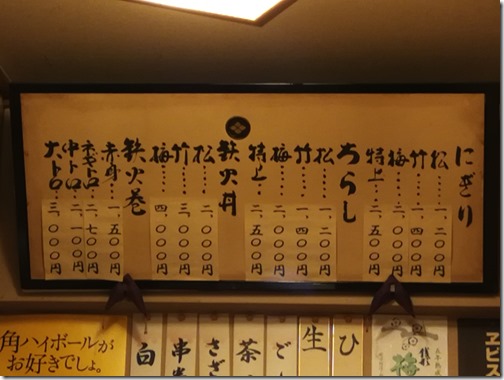 にぎり
松‥‥‥一、二〇〇円
竹‥‥‥一、四〇〇円
梅‥‥‥二、〇〇〇円
特上‥‥二、五〇〇円
ちらし
松‥‥‥一、二〇〇円
竹‥‥‥一、四〇〇円
梅‥‥‥二、〇〇〇円
特上‥‥二、五〇〇円
鉄火丼
松‥‥‥二、〇〇〇円
竹‥‥‥三、〇〇〇円
梅‥‥‥四、〇〇〇円
鉄火巻
赤身‥‥一、五〇〇円
ネギトロ‥一、七〇〇円
中トロ‥‥二、一〇〇円
大トロ‥‥三、〇〇〇円
角ハイボールが
お好きでしょ。
ヱビス
梅
ひ
生
ご
茶
さざ
串
白